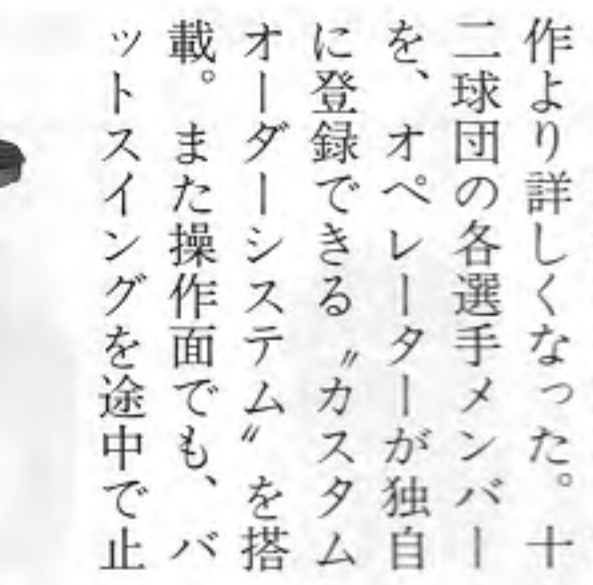 作より詳しくなった。十
二球団の各選手メンバー
を、オペレーターが独自
に登録できる〝カスタム
オーダーシステム〟を搭
載。また操作面でも、バ
ットスイングを途中で止